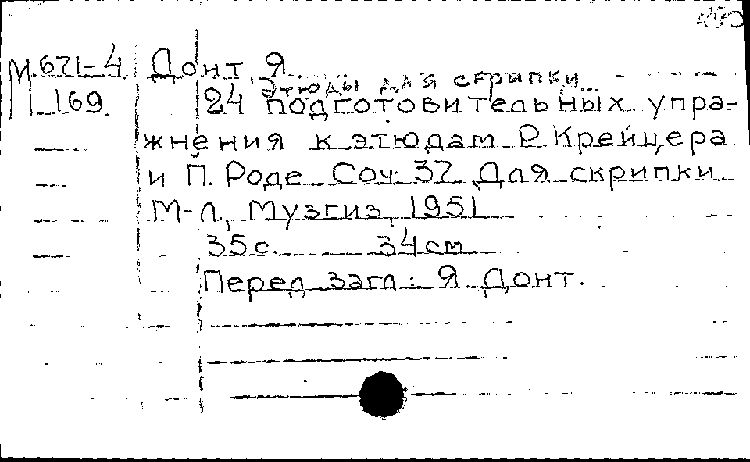 М.671-4 Донт, Я.
Этюды для скрипки...
169. 24 подготовительных упра-
жнения к этюдам Р. Крейцера
и П. Роде. Соч. 37. Для скрипки
М-Л, Музгиз, 1951
35 с. 34 см
Перед загл.: Я. Донт.